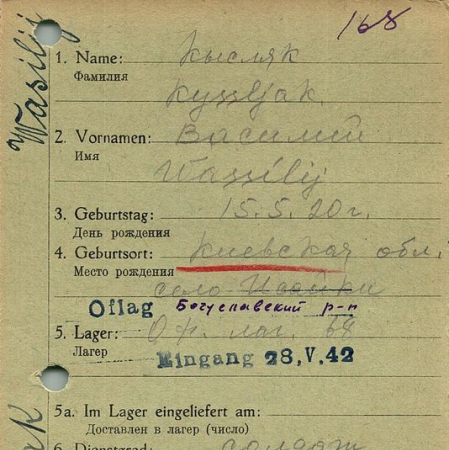 168
Wasilij
1. Name: Кысляк
Фамилия
Kyssljak.
2. Vornamen: Василий
Имя
Wassilij
3. Geburtstag: 15.5.20 г.
День рождения
4. Geburtsort: Киевская обл.
Место рождения село Исайки
Oflag Богуславский р-н
5. Lager: лаг.
Лагерь
Eingang 28.V.42
5a. Im Lager eingeliefert am:
Доставлен в лагерь (число)
6. Dienstgrad: солдат